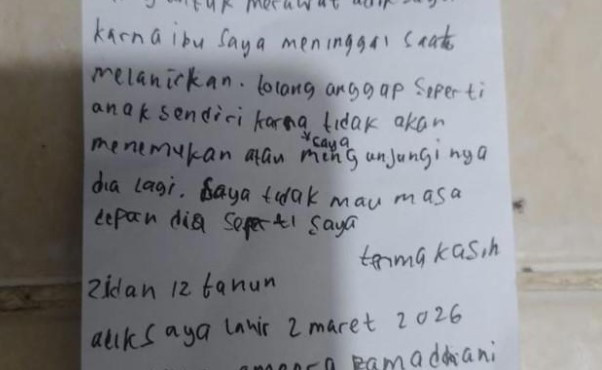 untuk merawat adik saya
karna ibu saya meninggal saat
melahirkan. tolong anggap seperti
anak sendiri karna tidak akan
menemukan atau saya mengunjungi nya
dia lagi. saya tidak mau masa
depan dia seperti saya
terima kasih
Zidan 12 tahun
adik saya lahir 2 maret 2026
ramadhani